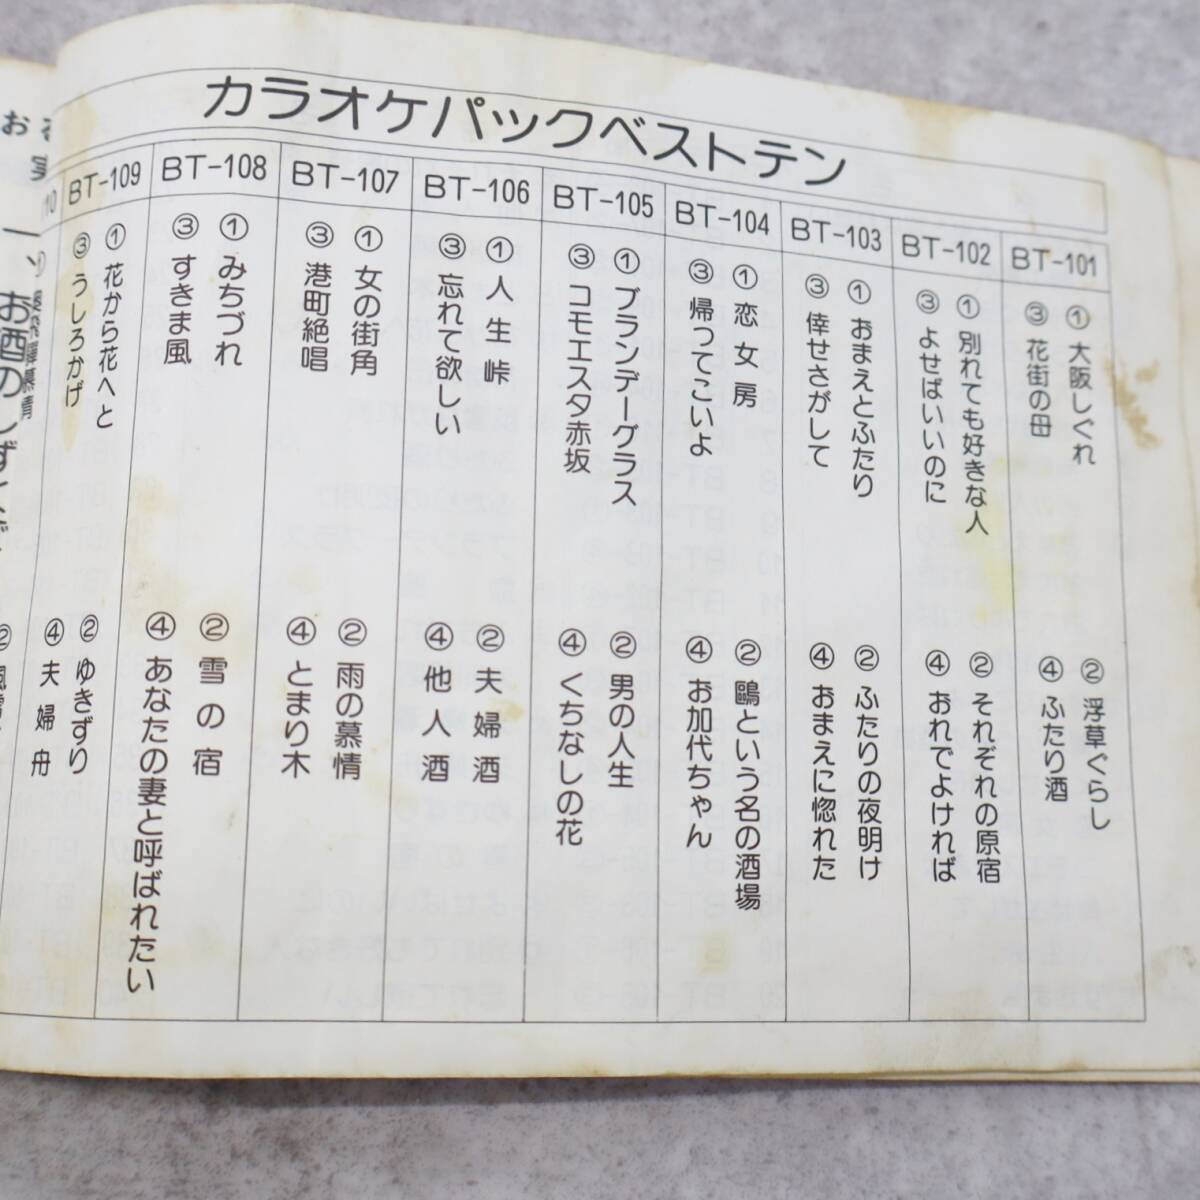 カラオケパックベストテン
BT-101
①大阪しぐれ
②浮草ぐらし
③花街の母
④ふたり酒
BT-102
①別れても好きな人
②それぞれの原宿
③よせばいいのに
④おれでよければ
BT-103
①おまえとふたり
②ふたりの夜明け
③倖せさがして
④おまえに惚れた
BT-104
①恋女房
②鷗という名の酒場
③帰ってこいよ
④お加代ちゃん
BT-105
①ブランデーグラス
②男の人生
③コモエスタ赤坂
④くちなしの花
BT-106
①人生峠
②夫婦酒
③忘れて欲しい
④他人酒
BT-107
①女の街角
②雨の慕情
③港町絶唱
④とまり木
BT-108
①みちづれ
②雪の宿
③すきま風
④あなたの妻と呼ばれたい
BT-109
①花から花へと
②ゆきずり
③うしろかげ
④夫婦舟